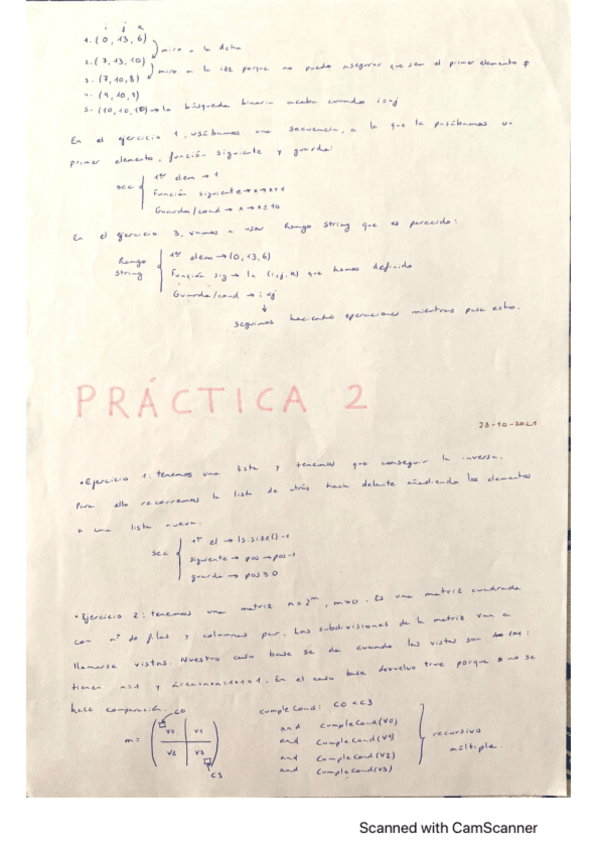 i j k
1. (0, 13, 6)
miro a la dcha
2. (7, 13, 10)
miro a la izq porque no puedo asegurar que sea el primer elemento
3. (7, 10, 8)
4. (9, 10, 9)
5. (10, 10, 10) → la búsqueda binaria acaba cuando i=j
En el ejercicio 1, usábamos una secuencia, a la que le pasábamos un
primer elemento, función siguiente y guarda:
sec
1er elem → 1
Función siguiente → x → x+1
Guarda/cond → x → x≤10
En el ejercicio 3, vamos a usar Rango String que es parecido:
Rango String
1er elem → (0, 13, 6)
Función sig → la (i, j, k) que hemos definido
Guarda/cond →
seguimos haciendo operaciones mientras pase esto.
PRÁCTICA 2
-10-2021
• Ejercicio 1: tenemos una lista y tenemos que conseguir la inversa.
Para ello recorremos la lista de atrás hacia delante añadiendo los elementos
a una lista nueva.
sec
1er el → ls.size()-1
siguiente → pos → pos-1
guarda → pos≥0
• Ejercicio 2: tenemos una matriz n=2^m, m>0. Es una matriz cuadrada
con nº de filas y columnas par. Las subdivisiones de la matriz van a
llamarse vistas. Nuestro caso base se da cuando las vistas son
tienen n=1 y área=n×n=1×1=1. En el caso base devuelvo true porque no se
hace comparación.
C0
m=
V0 V1
V2 V3
C3
cumpleCond: C0 < C3
and cumpleCond(V0)
and cumpleCond(V1)
and cumpleCond(V2)
and cumpleCond(V3)
recursivo
múltiple.
Scanned with CamScanner